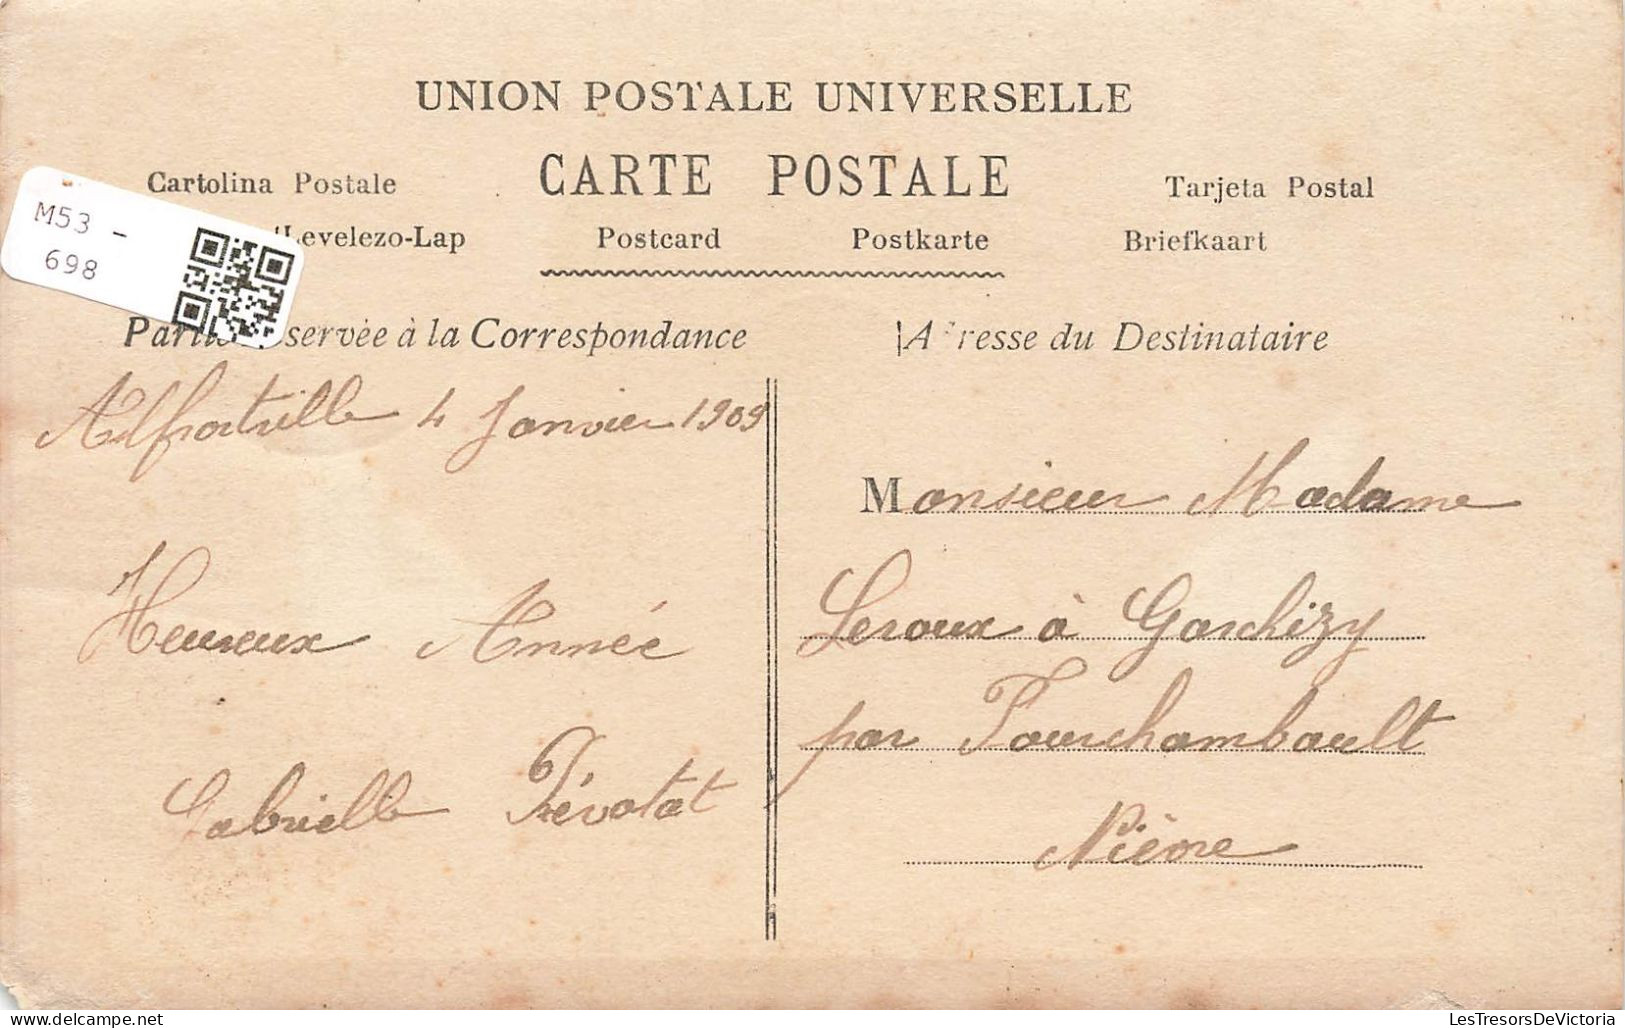 UNION POSTALE UNIVERSELLE
CARTE POSTALE
Cartolina Postale
Tarjeta Postal
M53 -
698
Levelezo-Lap
Postcard
Postkarte
Briefkaart
servée à la Correspondance
Adresse du Destinataire
Alfortville 4 Janvier 1909
Heureux Année
Gabrielle Prévotat
Monsieur Madame
Leroux à Garchizy
par Fourchambault
Nièvre
LesTresorsDeVictoria